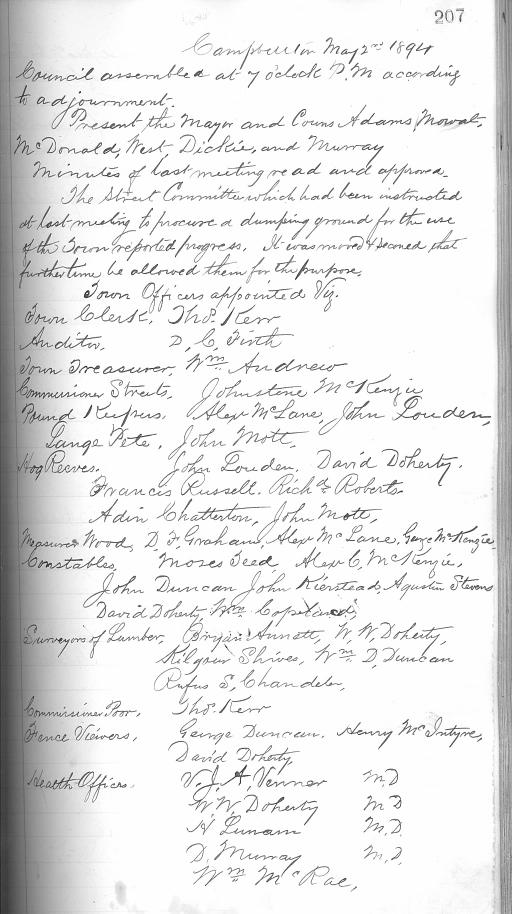 207
Campbellton May 2nd 1894
Council assembled at 7 o'clock P.M according
to adjournment.
Present the Mayor and Couns Adams, Mowat,
McDonald, West, Dickie, and Murray
Minutes of last meeting read and approved.
The Street Committee which had been instructed
at last meeting to procure a dumping ground for the use
of the Town reported progress. It was moved & seconed that
further time be allowed them for the purpose.
Town Officers appointed Viz.
Town Clerk, Thos. Kerr
Auditor, D. C. Firth
Town Treasurer, Wm Andrew
Commissioner Streets, Johnstone McKenzie
Pound Keepers, Alex McLane, John Louden,
Lange Pete, John Mott,
Hog Reeves. John Louden. David Doherty.
Francis Russell. Richd Roberts.
Adin Chatterton, John Mott,
Measurers Wood, D. F. Graham, Alex McLane, George McKenzie
Constables, Moses Teed, Alex C. McKenzie,
John Duncan John Kierstead, Agustin Stevens
David Doherty, Wm Copeland,
Surveyors of Lumber, Annett, W. W. Doherty,
Kilgour Shives, Wm D. Duncan
Rufus S. Chandeler,
Commissioner Poor, Thos. Kerr
Fence Viewers, George Duncan. Henry McIntyre,
David Doherty,
Health Officers. V. J. A. Venner M.D
W. W. Doherty M D
H Lunam M.D.
D. Murray M.D.
Wm McRae,